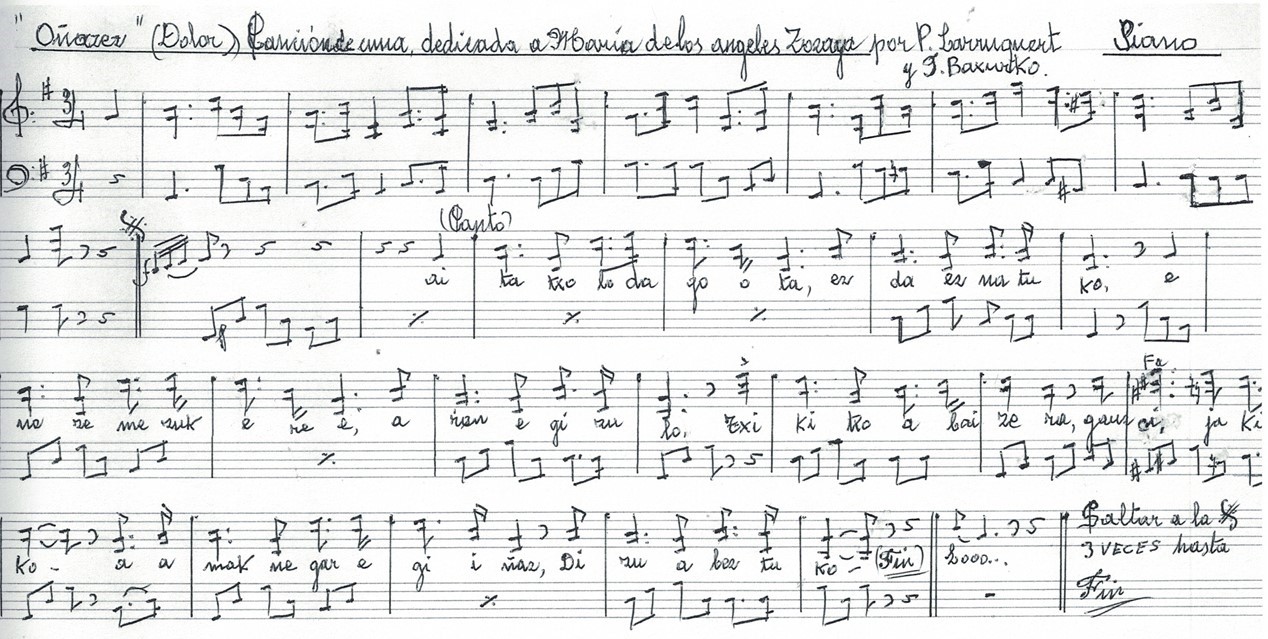 "Oñazez" (Dolor) Canción de cuna, dedicada a María de los angeles Zozaya por P. Larruquert Piano
y J. Baxurko.
(Canto)
ai ta txo lo da go o ta, ez da ez na tu ko, e
ne ze me zuk e re e, a izan e gi zu lo, txi ki txo a bai ze ra, gauz
Fa
ci, ja ki
ko - a a mak ne gar e gi i ñaz, Di zu a bez tu ko - (Fin) Looo...
Saltar a la
3 VECES hasta
Fin